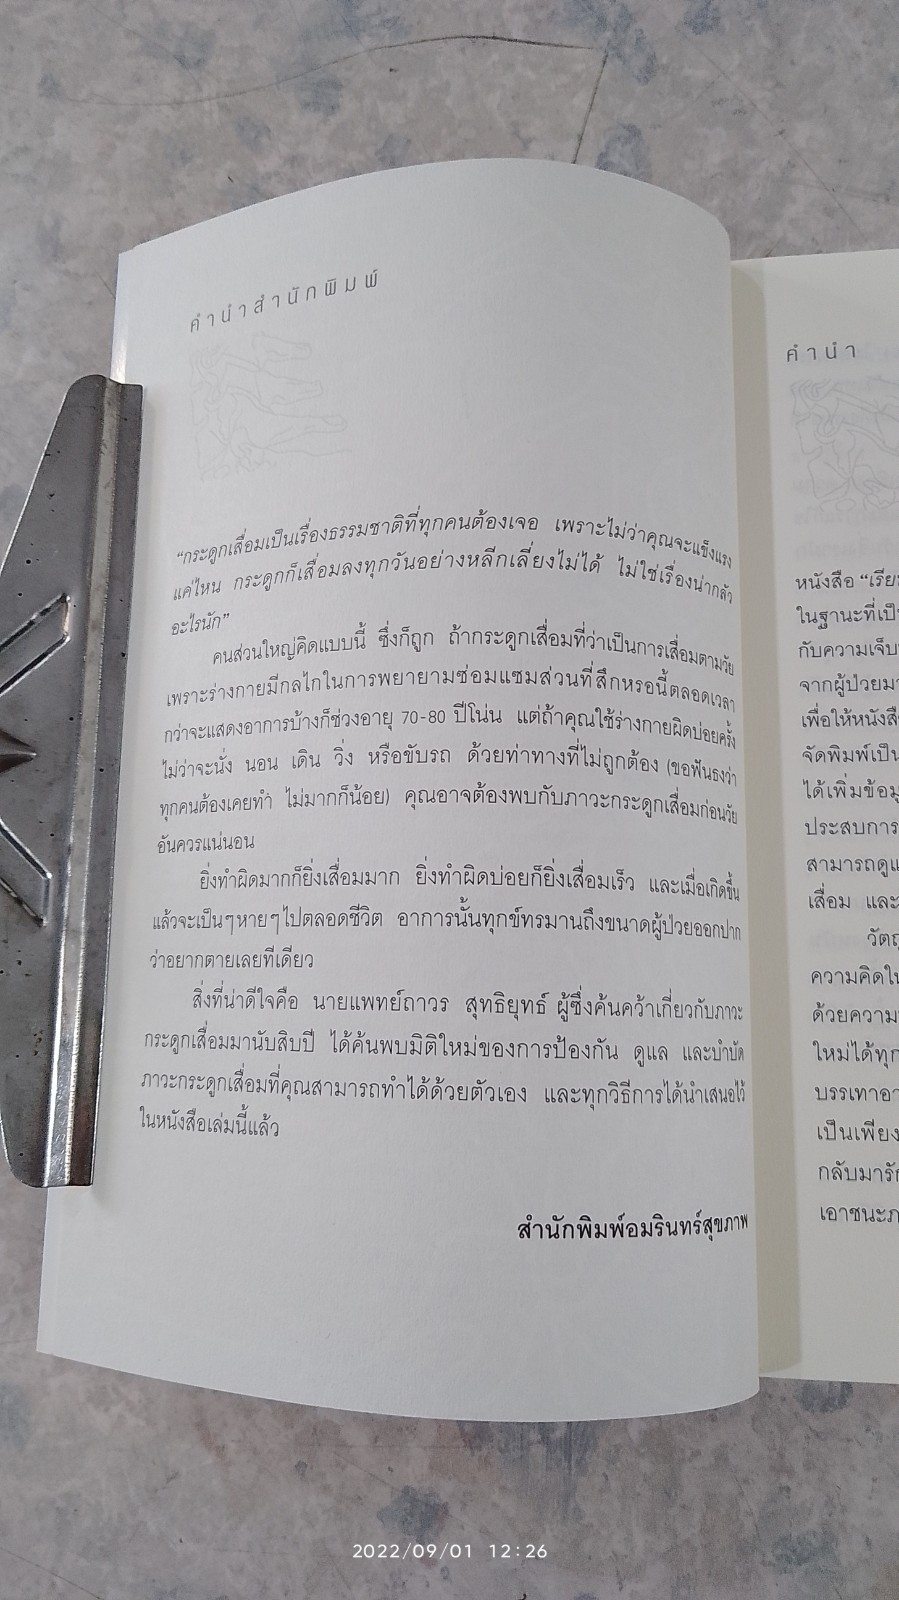 คำนำสำนักพิมพ์
“กระดูกเสื่อมเป็นเรื่องธรรมชาติที่ทุกคนต้องเจอ เพราะไม่ว่าคุณจะแข็งแรง
แค่ไหน กระดูกก็เสื่อมลงทุกวันอย่างหลีกเลี่ยงไม่ได้ ไม่ใช่เรื่องน่ากลัว
อะไรนัก”
คนส่วนใหญ่คิดแบบนี้ ซึ่งก็ถูก ถ้ากระดูกเสื่อมที่ว่าเป็นการเสื่อมตามวัย
เพราะร่างกายมีกลไกในการพยายามซ่อมแซมส่วนที่สึกหรอนี้ตลอดเวลา
กว่าจะแสดงอาการบ้างก็ช่วงอายุ 70-80 ปีโน่น แต่ถ้าคุณใช้ร่างกายผิดบ่อยครั้ง
ไม่ว่าจะนั่ง นอน เดิน วิ่ง หรือขับรถ ด้วยท่าทางที่ไม่ถูกต้อง (ขอฟันธงว่า
ทุกคนต้องเคยทำ ไม่มากก็น้อย) คุณอาจต้องพบกับภาวะกระดูกเสื่อมก่อนวัย
อันควรแน่นอน
ยิ่งทำผิดมากก็ยิ่งเสื่อมมาก ยิ่งทำผิดบ่อยก็ยิ่งเสื่อมเร็ว และเมื่อเกิดขึ้น
แล้วจะเป็นๆหายๆไปตลอดชีวิต อาการนั้นทุกข์ทรมานถึงขนาดผู้ป่วยออกปาก
ว่าอยากตายเลยทีเดียว
สิ่งที่น่าดีใจคือ นายแพทย์ถาวร สุทธิยุทธ์ ผู้ซึ่งค้นคว้าเกี่ยวกับภาวะ
กระดูกเสื่อมมานับสิบปี ได้ค้นพบมิติใหม่ของการป้องกัน ดูแล และบำบัด
ภาวะกระดูกเสื่อมที่คุณสามารถทำได้ด้วยตัวเอง และทุกวิธีการได้นำเสนอไว้
ในหนังสือเล่มนี้แล้ว
สำนักพิมพ์อมรินทร์สุขภาพ
คำนำ
หนังสือ “เรีย
ในฐานะที่เป็
กับความเจ็บ
จากผู้ป่วยมา
เพื่อให้หนังสือ
จัดพิมพ์เป็น
ได้เพิ่มข้อมู
ประสบการ
สามารถดูแ
เสื่อม และ
วัตถุ
ความคิดใน
ด้วยความ
ใหม่ได้ทุก
บรรเทาอา
เป็นเพียง
กลับมารัก
เอาชนะภ
2022/09/01 12:26